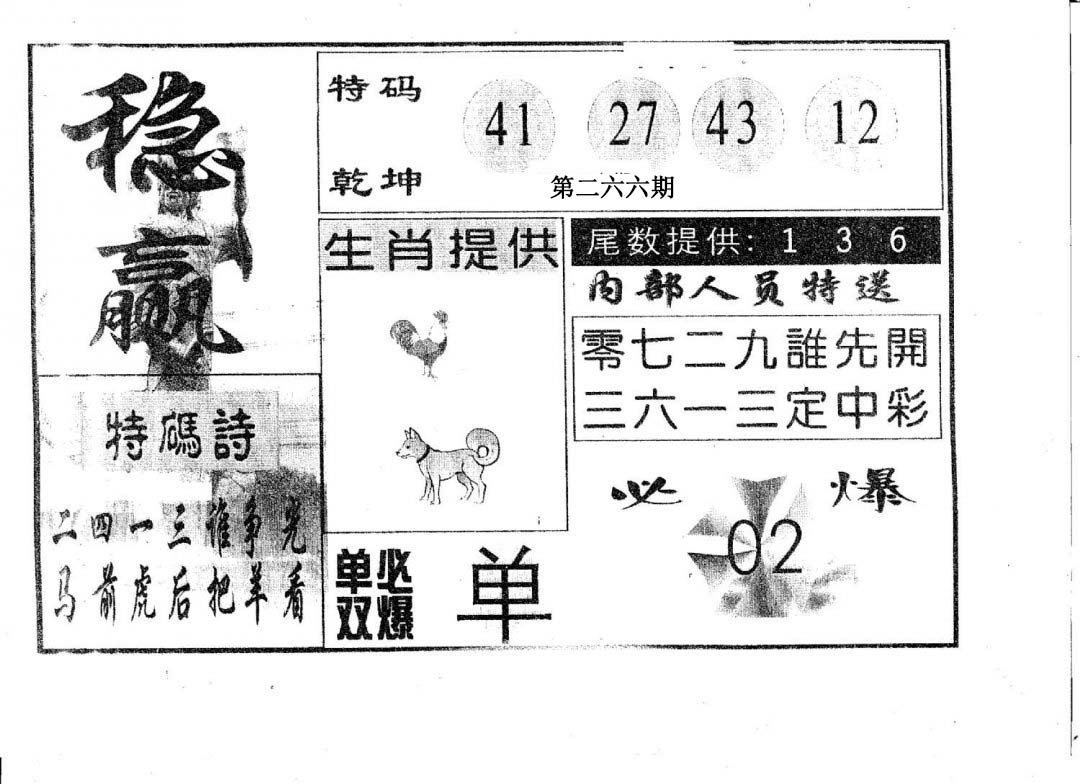 稳
赢
特码
乾坤
41 27 43 12
第二六六期
生肖提供
尾数提供: 1 3 6
内部人员特送
零七二九誰先開
三六一三定中彩
特碼詩
二四一三谁争光
马前虎后把羊看
单双
必爆
单
必爆
02